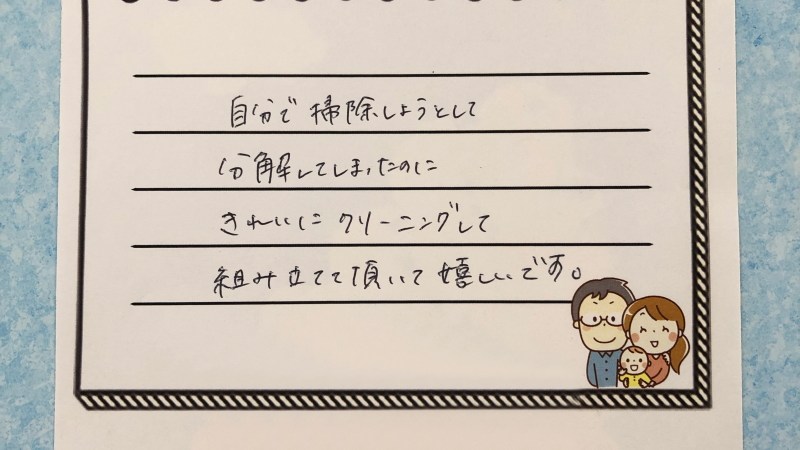 自分で掃除しようとして
分解してしまったのに
きれいにクリーニングして
組み立てて頂いて嬉しいです。